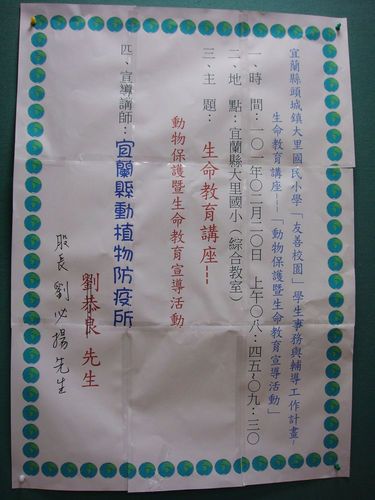 宜蘭縣頭城鎮大里國民小學「友善校園」學生事務與輔導工作計畫-
生命教育講座---「動物保護暨生命教育宣導活動」
一、時　間：一○一年○二月二○日　上午○八：四五~○九：三○
二、地　點：宜蘭縣大里國小（綜合教室）
三、主　題：生命教育講座---
動物保護暨生命教育宣導活動
四、宣導講師：宜蘭縣動植物防疫所
劉恭良 先生
股長 劉必揚先生